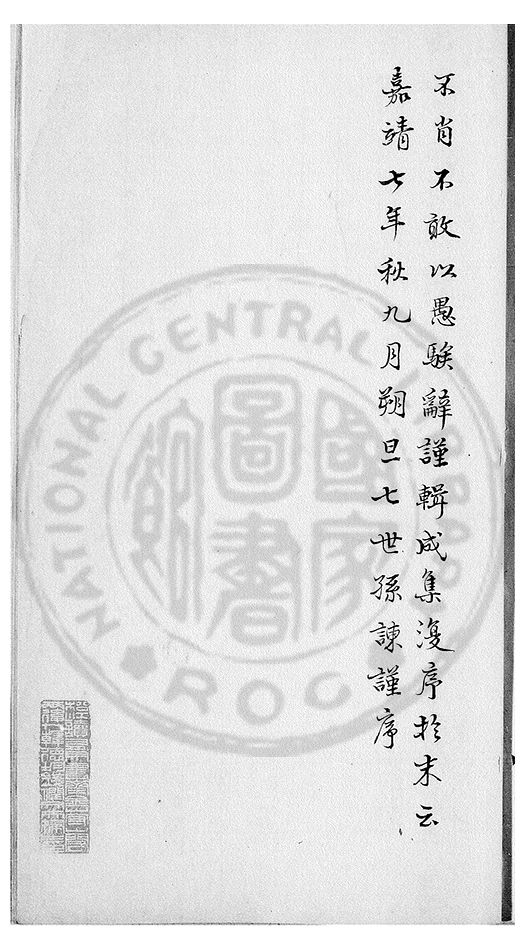 不肖不敢以愚騃辭謹輯成集復序於末云
嘉靖七年秋九月朔旦七世孫諫謹序
NATIONAL CENTRAL
國家圖書
ROC